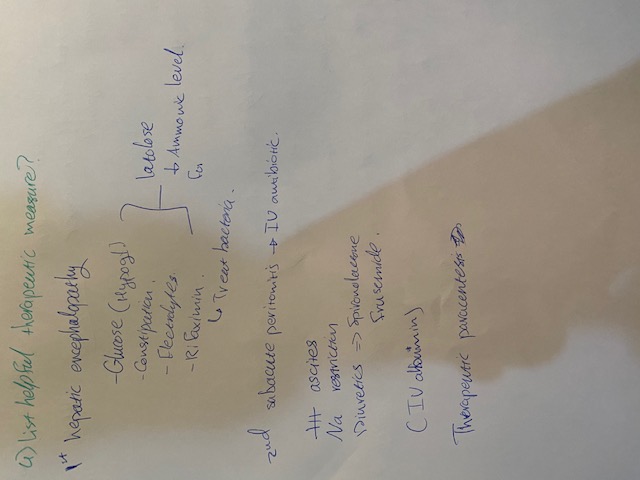 a) List helpful therapeutic measure?
1st hepatic encephalopathy
- Glucose (Hypogl)
- Constipation.
- Electrolytes.
- Rifaximin.
↳ Treat bacteria.
lactolose
↓ Ammonic level.
2nd subacute peritonitis → IV antibiotic.
ascites
Na restriction
Diuretics => Spironolactone
Frusemide.
( IV albumin)
Therapeutic paracentesis